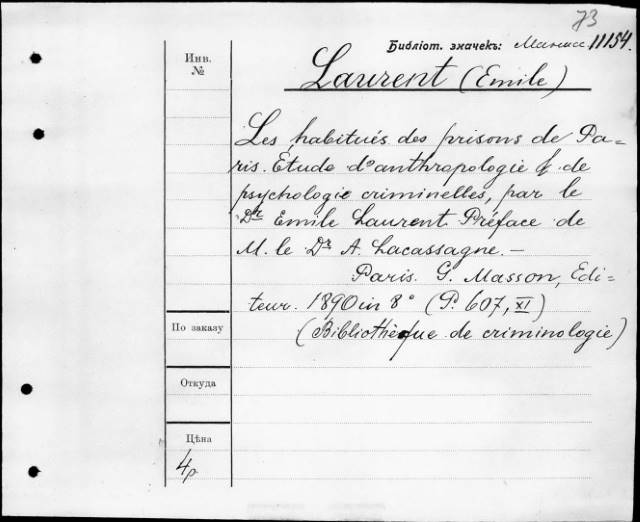 73
Библіот. значекъ: 11154.
Инв.
№
Laurent (Emile)
Les habitués des prisons de Pa=
ris. Etude d'anthropologie & de
psychologie criminelles, par le
Dr Emile Laurent. Préface de
M. le Dr A. Lacassagne. —
Paris. G. Masson, Edi=
teur. 1890 in 8° (P. 607, XI)
(Bibliothèque de criminologie)
По заказу
Откуда
Цѣна
4р